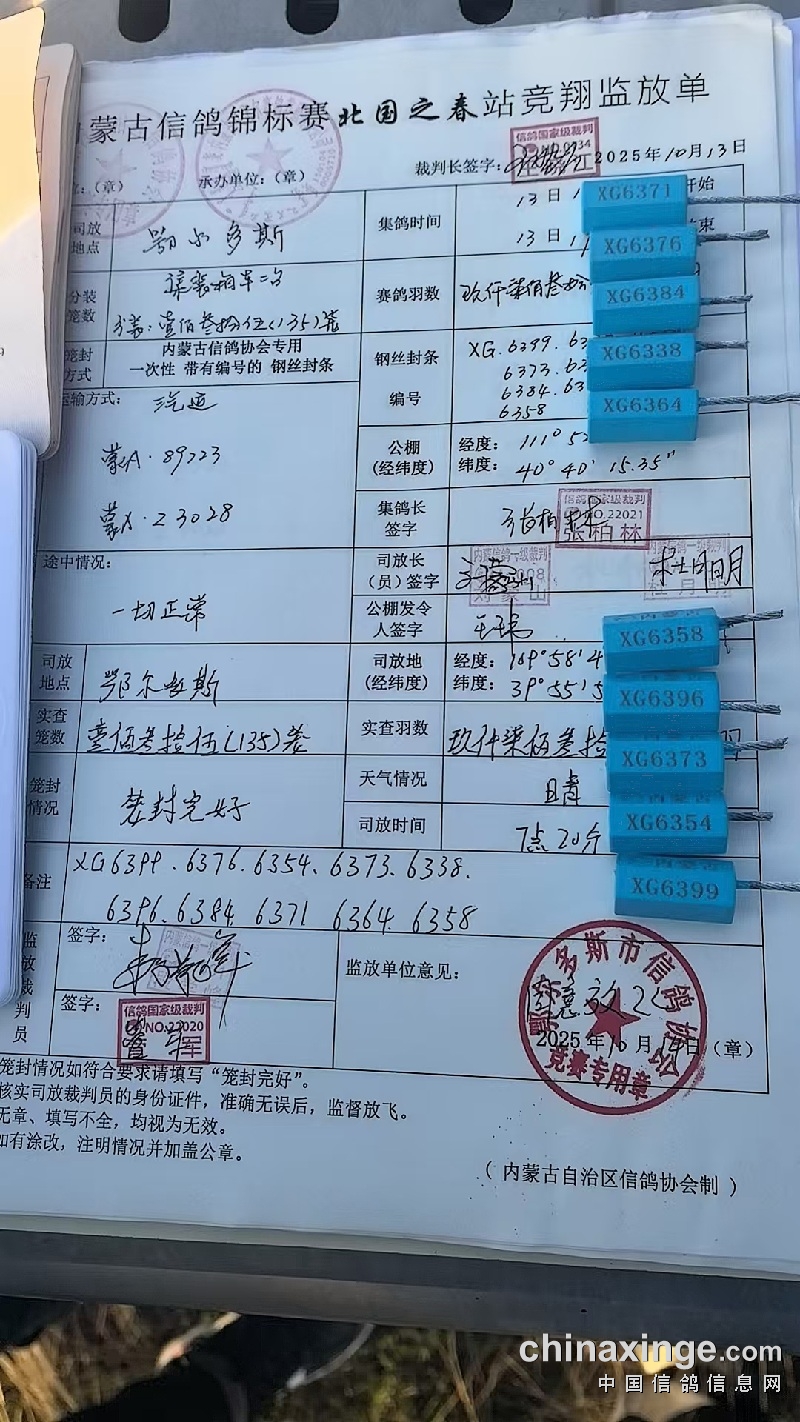 内蒙古信鸽锦标赛北国之春站竞翔监放单
(章) 承办单位:(章) 裁判长签字: 2025年10月13日
司放地点 鄂尔多斯 集鸽时间 13日 开始
13日 结束
分装笼数 赛鸽羽数 玖仟柒佰叁拾
壹佰叁拾伍(135)笼
笼封方式 内蒙古信鸽协会专用
一次性 带有编号的 钢丝封条
钢丝封条编号 XG.6399.63
6373.63
6384.63
6358
运输方式: 汽运
蒙A·89723
蒙A·23028
公棚(经纬度) 经度: 111° 52
纬度: 40° 40' 15.35"
集鸽长签字 张柏林
信鸽国家级裁判
NO.22021
张柏林
途中情况:
一切正常
司放长(员)签字 杜明明
内蒙信鸽一级裁判
公棚发令人签字
司放地点 鄂尔多斯 司放地(经纬度) 经度: 109°58'4
纬度: 39°55'5
实查笼数 壹佰叁拾伍(135)笼 实查羽数 玖仟柒佰叁拾
笼封情况 笼封完好 天气情况 晴
司放时间 7点20分
备注 XG6399.6376.6354.6373.6338.
6396.6384.6371 6364.6358
监放裁判员 签字: 监放单位意见:
签字:
信鸽国家级裁判
NO.22020
鄂尔多斯市信鸽协会
竞赛专用章
同意放飞
2025年10月14日(章)
笼封情况如符合要求请填写“笼封完好”。
核实司放裁判员的身份证件,准确无误后,监督放飞。
无章、填写不全,均视为无效。
如有涂改,注明情况并加盖公章。
(内蒙古自治区信鸽协会制)
XG6371
XG6376
XG6384
XG6338
XG6364
XG6358
XG6396
XG6373
XG6354
XG6399
chinaxinge.com
中国信鸽信息网